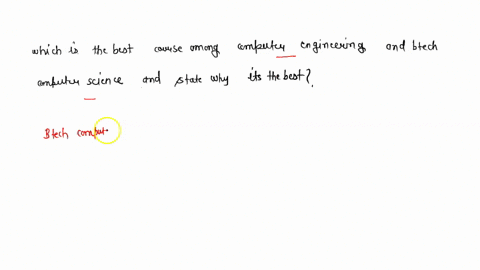 which is the best course among computer engineering and btech
computer science and state why its the best?
Btech comput